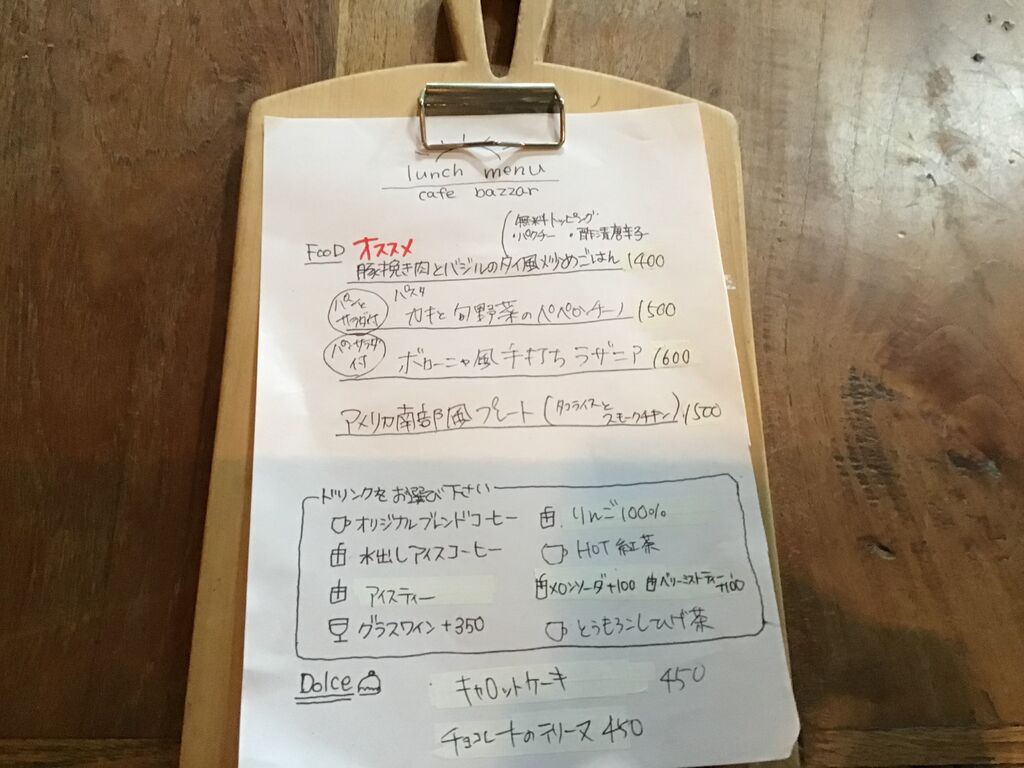 lunch menu
cafe bazzar
無料トッピング
・パクチー ・酢漬唐辛子
FooD オススメ
豚挽き肉とバジルのタイ風炒めごはん 1400
パンとサラダ付 パスタ
カキと旬野菜のペペロンチーノ 1500
パンサラダ付 ボローニャ風手打ちラザニア 1600
アメリカ南部風プレート (タコライスとスモークチキン) 1500
ドリンクをお選び下さい
オリジナルブレンドコーヒー りんご100%
水出しアイスコーヒー HOT 紅茶
アイスティー メロンソーダ+100 ベリーミストティー+100
グラスワイン+350 とうもろこしひげ茶
Dolce キャロットケーキ 450
チョコレートのテリーヌ 450